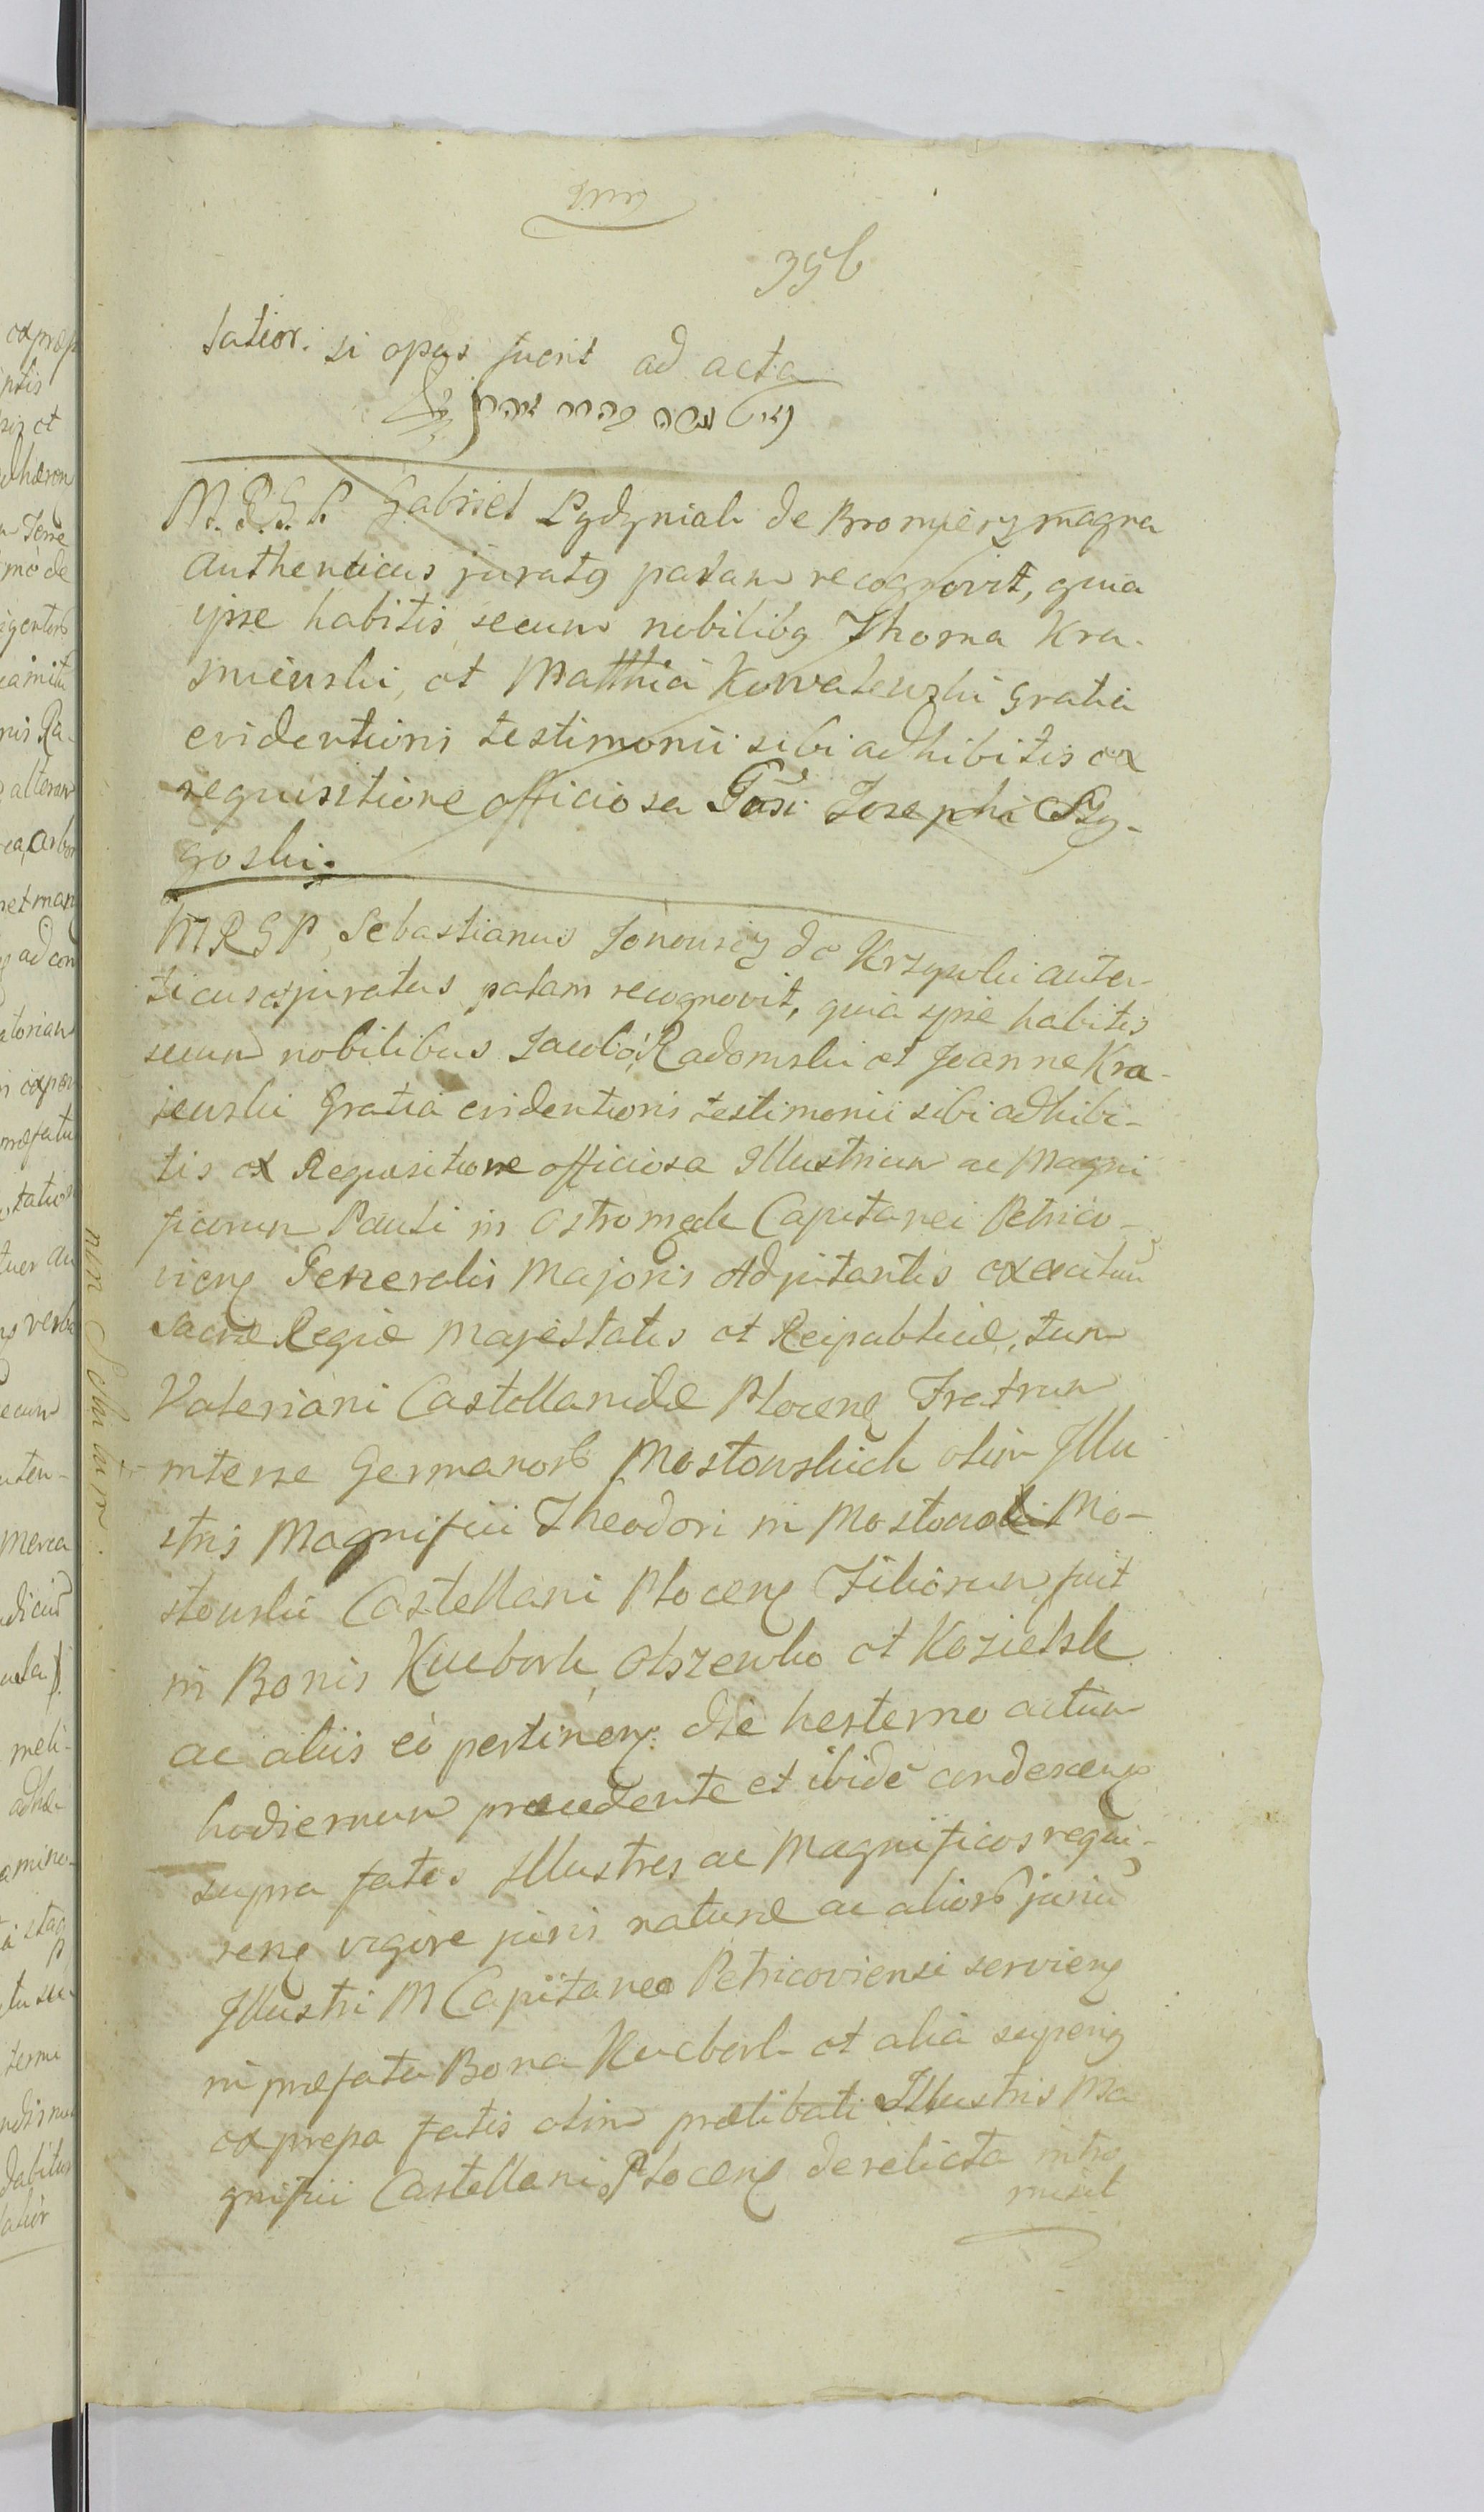 396
tatior. si opus fuerit ad acta
M. R. G. P. Gabriel Pydyniak de Bromierz magna
Authenticus juratg palam recognovit, quia
ipse habitis secum nobilibg Thoma Kra-
snienski, et Matthia Kowalewski Gratia
evidentioris testimonii sibi adhibitis ex
requisitione officiosa Josephi
goski.
MRGP Sebastianus de Krzywki auten-
ticus et juratus palam recognovit, quia ipse habitis
secum nobilibus Jacobo Radomski et Joanne Kra-
jewski Gratia evidentioris testimonii sibi adhibi-
tis ex Requisitione officiosa Illustrium ac Magni
ficorum Pauli in Capitanei Petrico-
vieng Generalis Majoris Adjutantis exercituu
Sacræ Regiæ Majestatis et Reipublicæ, tum
Valeriani Castellanidæ Ploceng Fratrum
interse Germanorb Mostowskich olim Illu
stris Magnifici Theodori in Mostowo Mo-
stowski Castellani Ploceng Filiorum fuit
in Bonis Kucbork, Olszewko et Kozielsk
ac aliis eò pertineng: die hesterno actum
hodiernum præcedente et ibidē condesceng
supra fatos Illustres ac Magnificos requi-
reng vigore juris naturæ ac aliorb juriū
Illustri M Capitaneo Petricoviensi servieng
in præfata Bona Kucbork et alia superig
ex præpa fatis olim prælibati Illustris Ma
gnifici Castellani Ploceng derelicta intro
misit
non Solutum